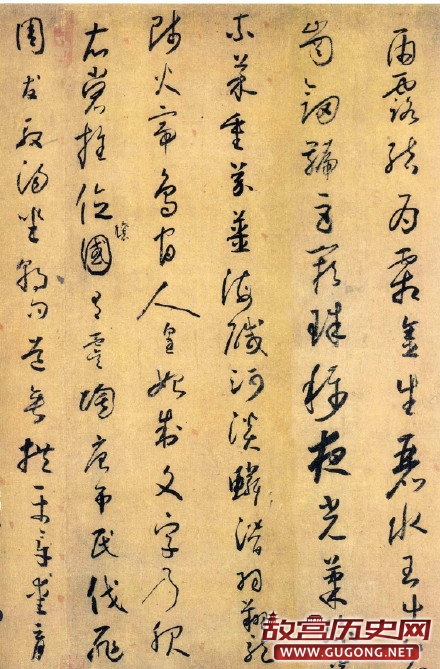 雨露結為霜金生麗水玉出
崗劍號巨闕珠稱夜光菓
柰菜重芥薑海醎河淡鱗潛羽翔龍
師火帝鳥官人皇始制文字乃服
衣裳推位國讓有虞陶唐弔民伐罪
周發殷湯坐朝問道垂拱平章愛育
故宫历史网
WWW.GUGONG.NET